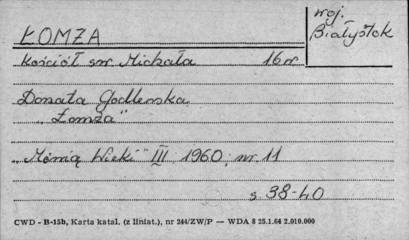 ŁOMŻA
woj.
Białystok
Kościół św. Michała 16 w.
Donata Godlewska
„Łomża"
„Mówią Wieki" III 1960, nr. 11
s. 38-40
CWD - B-15b, Karta katal. (z liniat.), nr 244/ZW/P — WDA 8 25.1.64 2.010.000